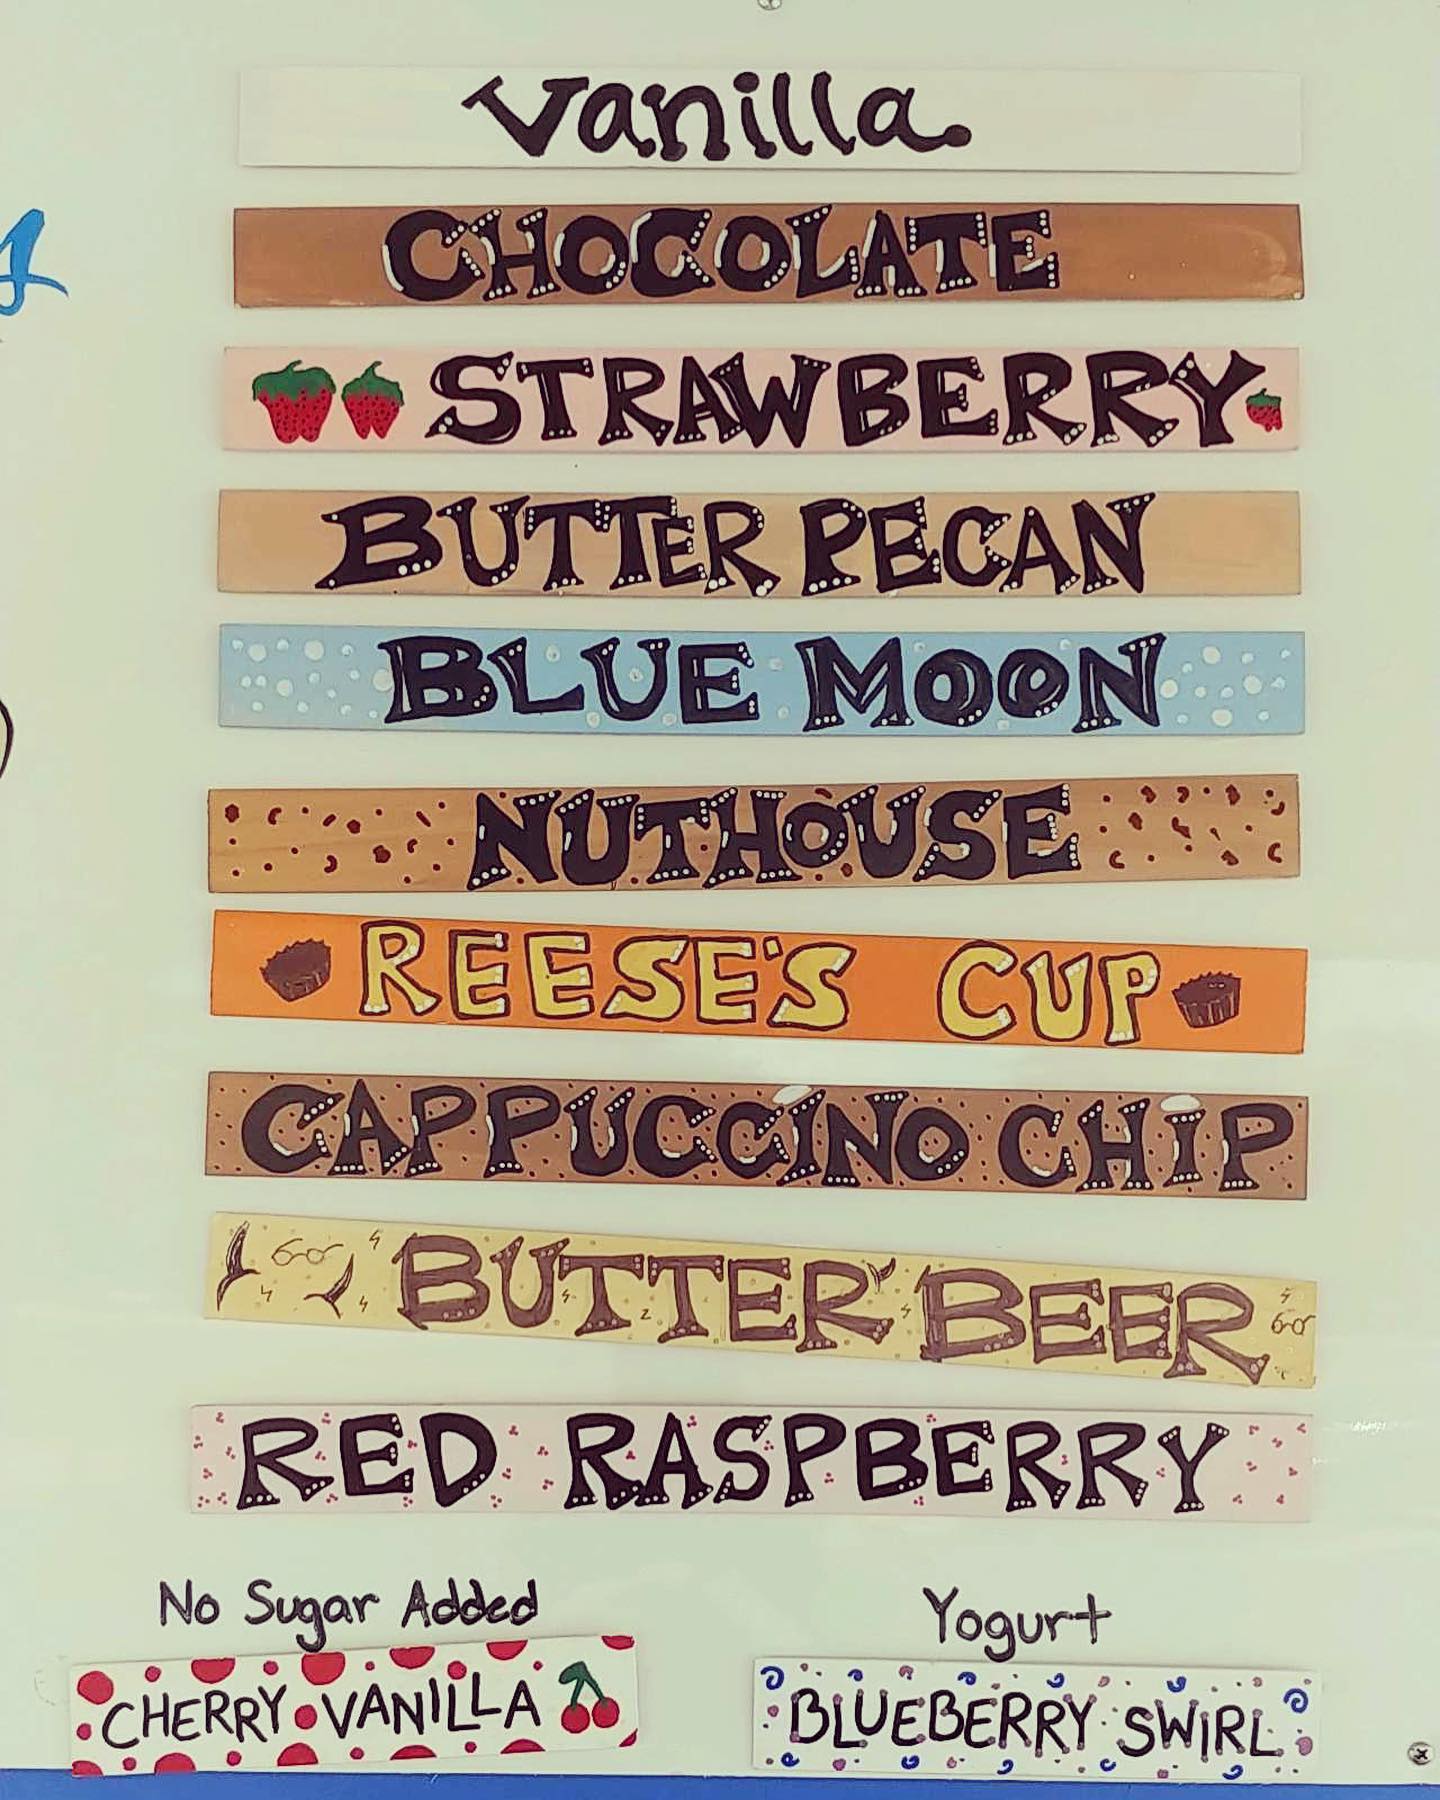 Vanilla
CHOCOLATE
STRAWBERRY
BUTTER PECAN
BLUE MOON
NUTHOUSE
REESE'S CUP
CAPPUCCINO CHIP
BUTTER BEER
RED RASPBERRY
No Sugar Added
CHERRY VANILLA
Yogurt
BLUEBERRY SWIRL